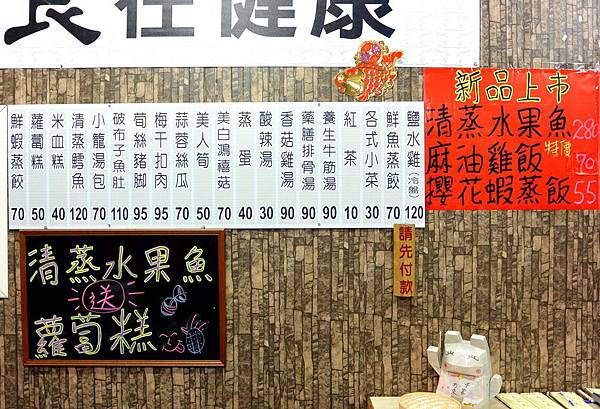 食在健康
新品上市
清蒸水果魚 280
麻油雞飯 特價 70
櫻花蝦蒸飯 55
鹽水雞(冷盤) 120
鮮魚蒸餃 70
各式小菜 30
紅茶 10
養生牛筋湯 90
藥膳排骨湯 90
香菇雞湯 90
酸辣湯 30
蒸蛋 40
美白鴻禧菇 70
美人筍 50
蒜蓉絲瓜 70
梅干扣肉 95
筍絲豬腳 95
破布子魚肚 110
小龍湯包 70
清蒸鱈魚 120
米血糕 40
蘿蔔糕 50
鮮蝦蒸餃 70
請先付款
清蒸水果魚
送
蘿蔔糕